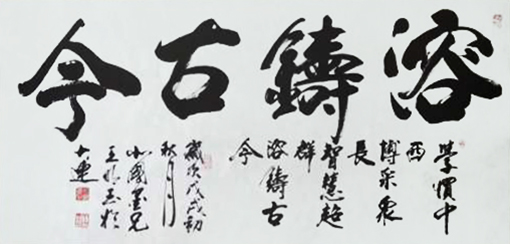 溶鑄古今
學慣中
西
博采衆
長
智慧超
群
溶鑄古
今
歲次戊戌初
秋月
小國墨兄
王
大連